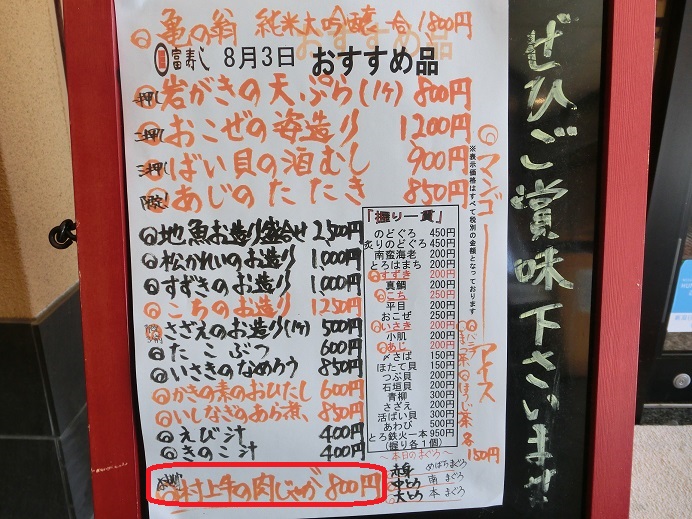 亀の翁 純米大吟醸 一合 1800円
富寿し 8月3日 おすすめ品
一押し 岩がきの天ぷら(1ケ) 800円
二押し おこぜの姿造り 1200円
三押し ばい貝の酒むし 900円
あじのたたき 850円
地魚お造り盛合せ 2,500円
松かれいのお造り 1,000円
すずきのお造り 1,000円
こちのお造り 1250円
さざえのお造り(1ケ) 500円
たこぶつ 600円
いさきのなめろう 850円
かきの素のおひたし 600円
いしなぎのあら煮 850円
えび汁 400円
きのこ汁 400円
村上牛の肉じゃが 800円
「握り一貫」
のどぐろ 450円
炙りのどぐろ 450円
南蛮海老 200円
とろはまち 200円
すずき 200円
真鯛 200円
こち 250円
平目 200円
おこぜ 250円
いさき 200円
小肌 200円
あじ 200円
〆さば 150円
ほたて貝 150円
つぶ貝 200円
石垣貝 200円
青柳 300円
さざえ 200円
活ばい貝 300円
あわび 500円
とろ鉄火一本 950円
(握り各1個)
~本日のまぐろ~
赤身 めばちまぐろ
中とろ 南まぐろ
大とろ 本まぐろ
※表示価格はすべて税別の金額となっております
マンゴーアイス
バニラ
ほうじ茶 各150円
ぜひご賞味下さいませ